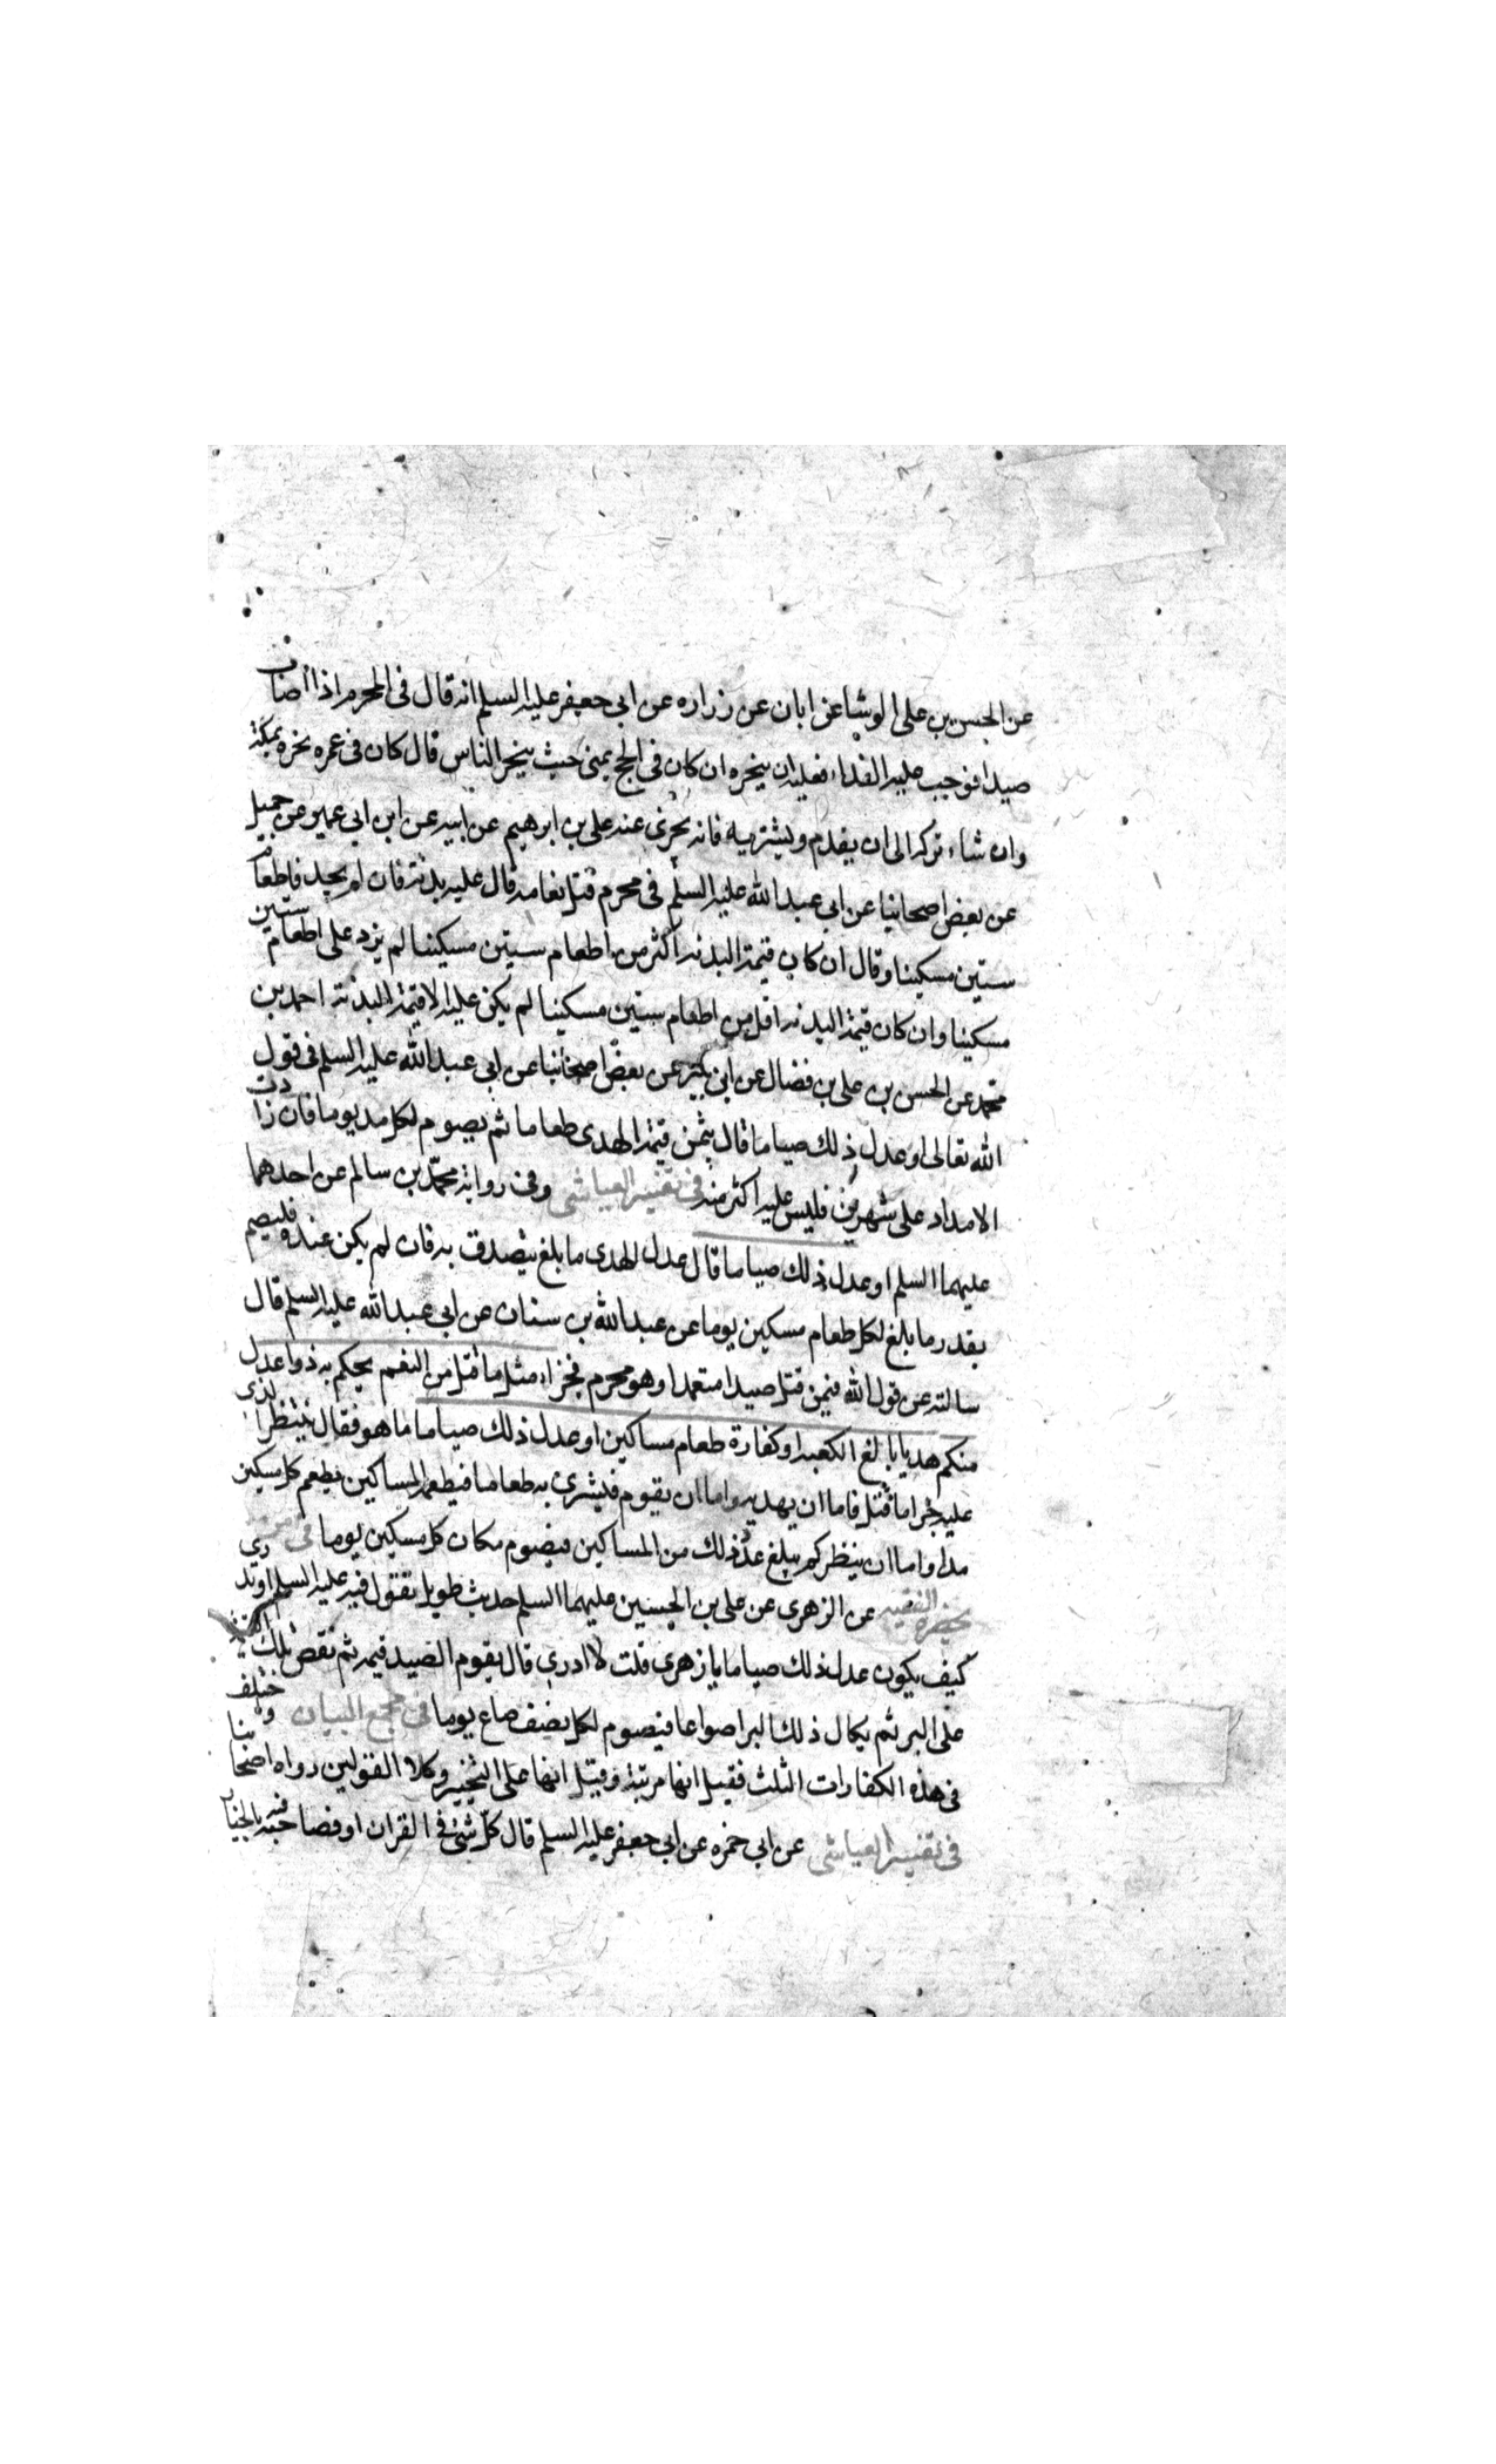 عن الحسن بن على الوشا عن ابان عن زراره عن ابى جعفر عليه السلم انه قال فى المحرم اذا اصاب
صيدا فوجب عليه الفداء فعليه ان ينحره ان كان فى الحج بمنى حيث ينحر الناس قال كان فى عمره نحره بمكة
وان شاء تركه الى ان يقدم ويشتريه فانه يجزى عنه على بن ابرهيم عن ابيه عن ابن ابى عمير عن جميل
عن بعض اصحابنا عن ابى عبد الله عليه السلم فى محرم قتل نعامه قال عليه بدنة فان لم يجد فاطعام
ستين مسكينا وقال ان كان قيمة البدنه اكثر من اطعام ستين مسكينا لم يزد على اطعام ستين
مسكينا وان كان قيمة البدنه اقل من اطعام ستين مسكينا لم يكن عليه الا قيمة البدنة احمد بن
محمد عن الحسن بن على بن فضال عن ابن بكير عن بعض اصحابنا عن ابى عبد الله عليه السلم فى قول
الله تعالى او عدل ذلك صياما قال يثمن قيمة الهدى طعاما ثم يصوم لكل مد يوما فان زادت
الامداد على شهرين فليس عليه اكثر منه فى تفسير العياشى وفى رواية محمد بن سالم عن احدهما
عليهما السلم او عدل ذلك صياما قال عدل الهدى ما بلغ يتصدق به فان لم يكن عنده فليصم
بقدر ما بلغ لكل طعام مسكين يوما عن عبد الله بن سنان عن ابى عبد الله عليه السلم قال
سالته عن قول الله فيمن قتل صيدا متعمدا وهو محرم فجزاء مثل ما قتل من النعم يحكم به ذوا عدل
منكم هديا بالغ الكعبه او كفارة طعام مساكين او عدل ذلك صياما ما هو فقال ينظر الذى
عليه جزا ما قتل فاما ان يهديه واما ان يقوم فيشترى به طعاما فيطعمه المساكين يطعم كل مسكين
مدا واما ان ينظر كم يبلغ عدد ذلك من المساكين فيصوم مكان كل مسكين يوما فى من لا
يحضره الفقيه عن الزهرى عن على بن الحسين عليهما السلم حديث طويل يقول فيه عليه السلم او تدرى
كيف يكون عدل ذلك صياما يا زهرى قلت لا ادرى قال يقوم الصيد قيمه ثم تفض تلك القيمة
على البر ثم يكال ذلك البر اصواعا فيصوم لكل نصف صاع يوما فى مجمع البيان واختلف
فى هذه الكفارات الثلث فقيل انها مرتبة وقيل انها على التخيير وكلا القولين رواه اصحابنا
فى تفسير العياشى عن ابى حمزه عن ابى جعفر عليه السلم قال كل شئ فى القران او فصاحبه فيه بالخيار